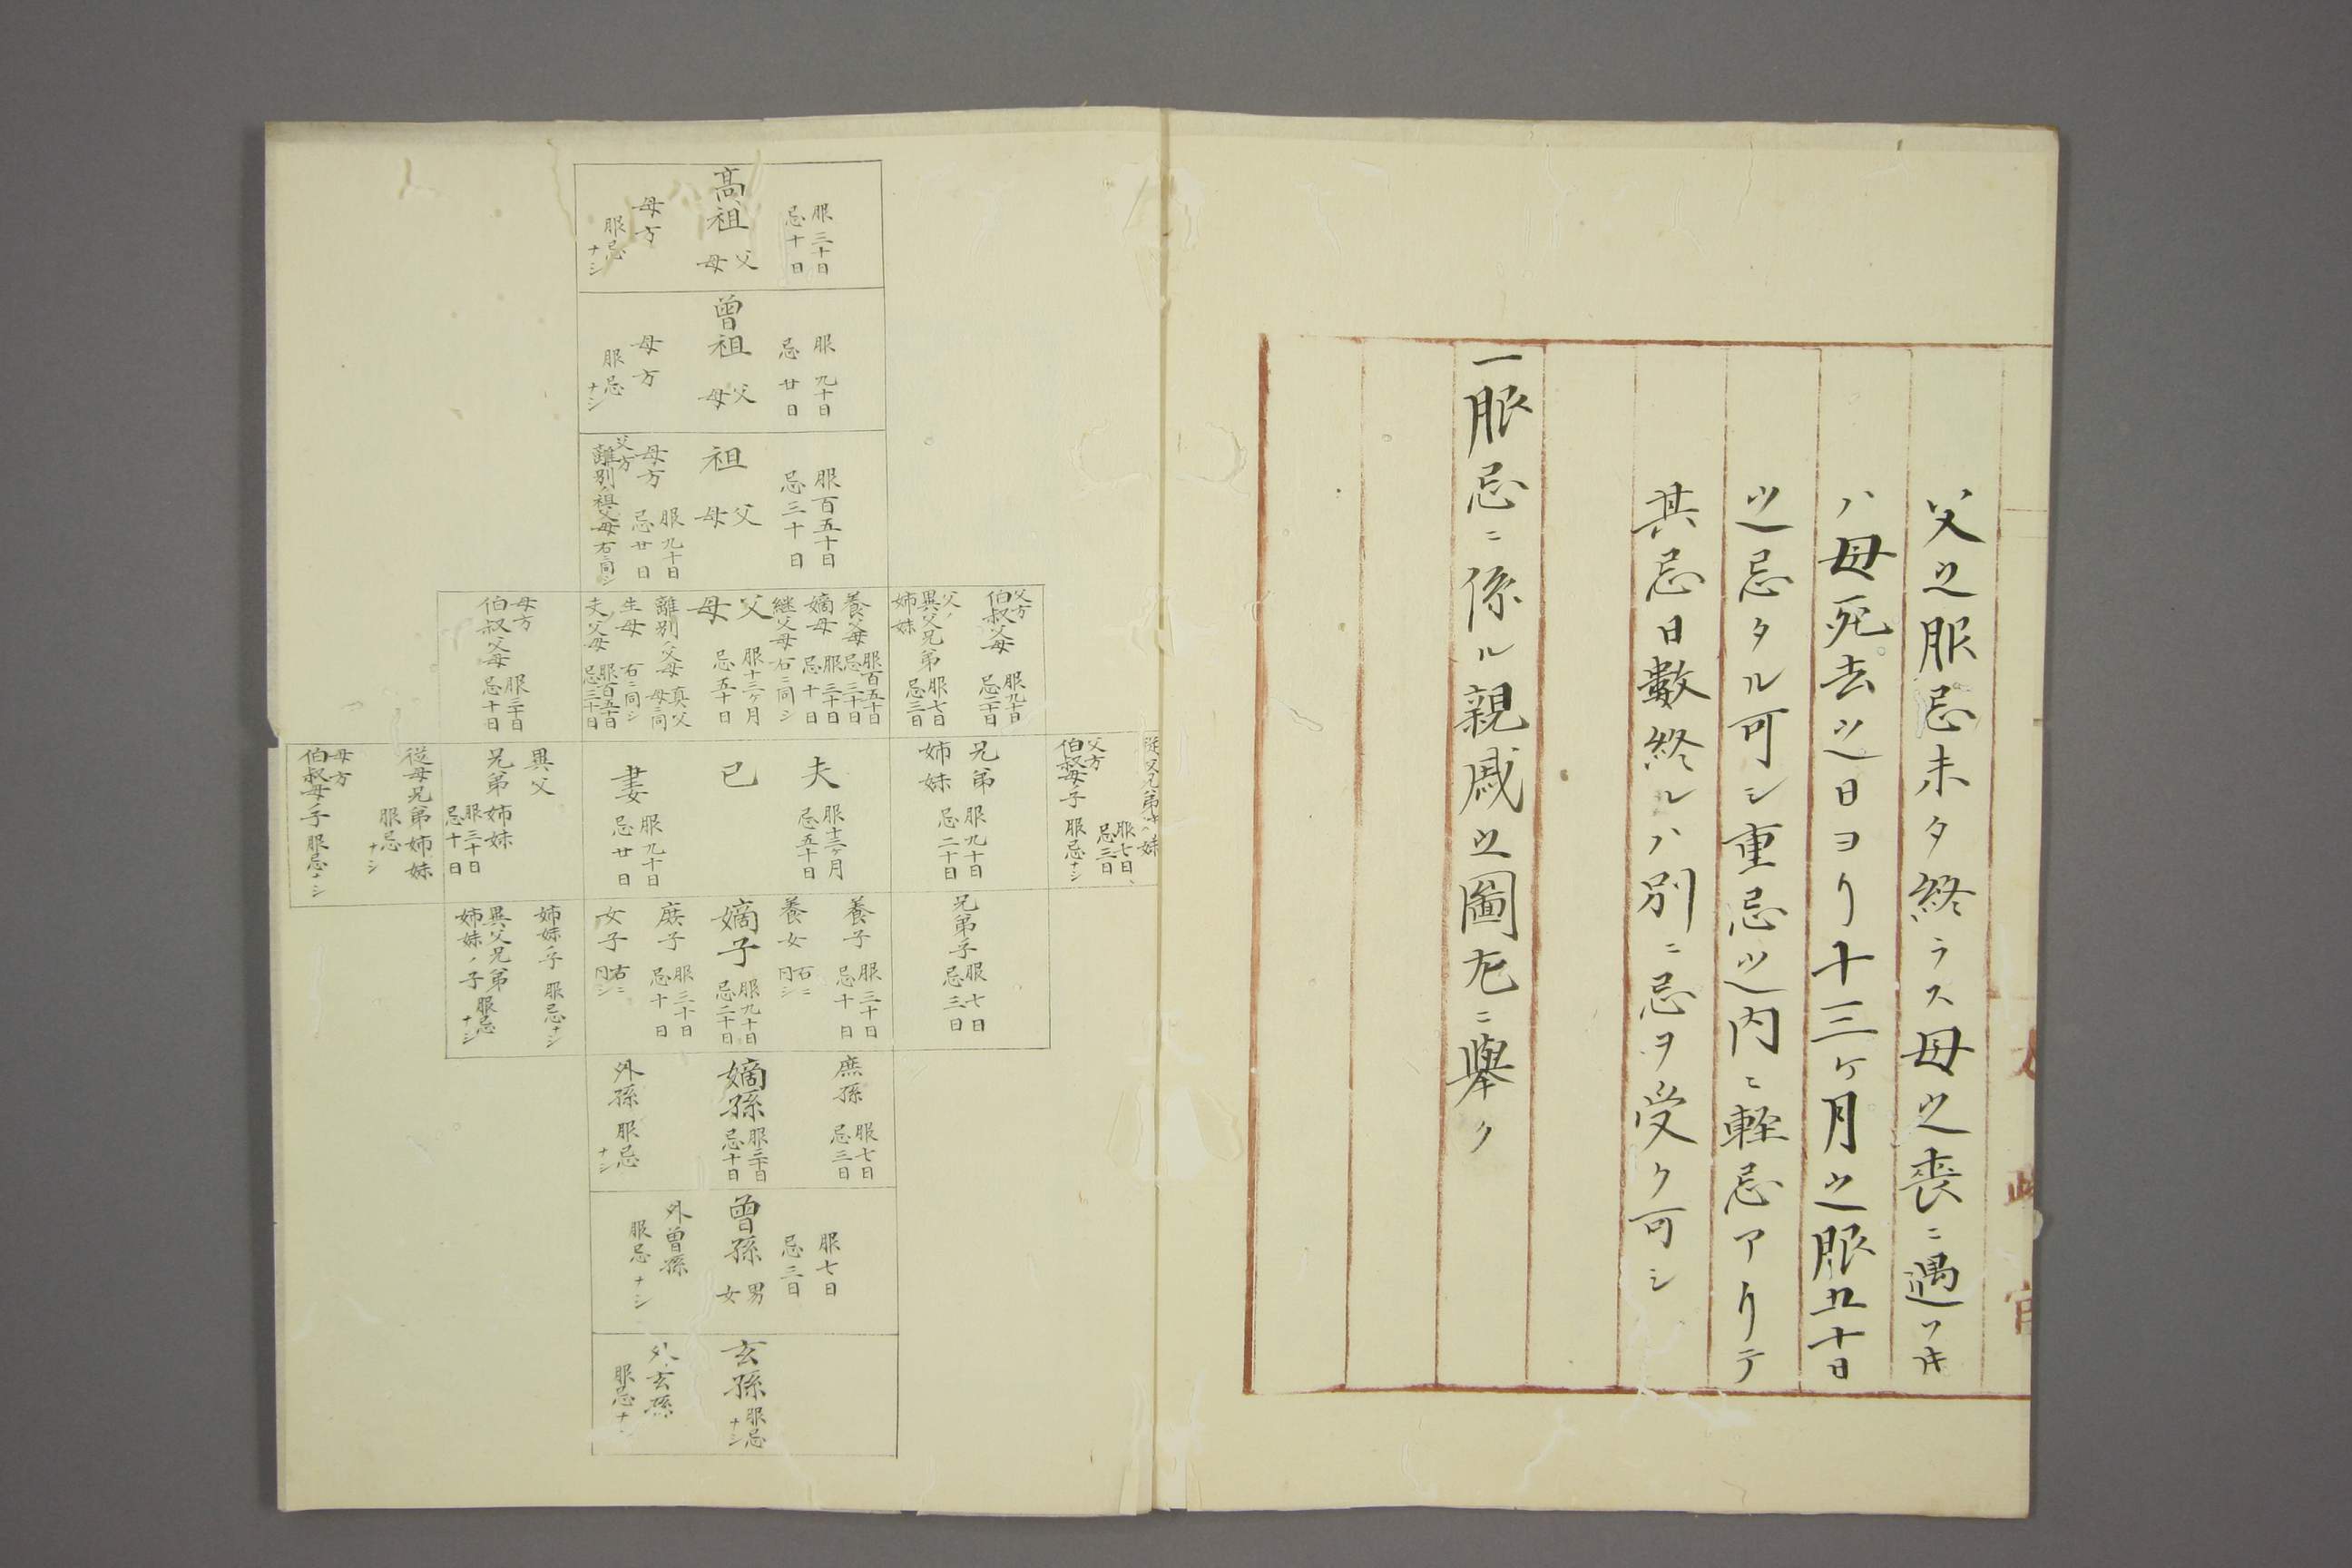 父之服忌未タ終ラス母之喪ニ遇フキ
ハ母死去之日ヨリ十三ケ月之服五十日
之忌タル可シ重忌之内ニ軽忌アリテ
其忌日數終レハ別ニ忌ヲ受ク可シ
一服忌ニ係ル親戚之圖左ニ擧ク
高祖父母
服三十日
忌十日
母方
服忌ナシ
曾祖父母
服九十日
忌廿日
母方
服忌ナシ
祖父母
服百五十日
忌三十日
母方
服九十日
忌廿日
父方
離別ノ祖父母右ニ同シ
父方
伯叔父母
服九十日
忌二十日
父ノ
異父兄弟
姉妹
服七日
忌三日
養父母
服百五十日
忌三十日
嫡母
服三十日
忌十日
継父母右ニ同シ
父母
服十三ケ月
忌五十日
離別ノ父母
真父母ニ同シ
生母
右ニ同シ
夫ノ父母
服百五十日
忌三十日
母方
伯叔父母
服三十日
忌十日
従父兄弟姉妹
服七日
忌三日
父方
伯叔母ノ子
服忌ナシ
兄弟
姉妹
服九十日
忌二十日
夫
服十三ケ月
忌五十日
己
妻
服九十日
忌廿日
異父
兄弟姉妹
服三十日
忌十日
従母兄弟姉妹
服忌ナシ
母方
伯叔母ノ子
服忌ナシ
兄弟ノ子
服七日
忌三日
養子
服三十日
忌十日
養女
右ニ同シ
嫡子
服九十日
忌二十日
庶子
服三十日
忌十日
女子
右ニ同シ
姉妹ノ子
服忌ナシ
異父兄弟
姉妹ノ子
服忌ナシ
庶孫
服七日
忌三日
嫡孫
服三十日
忌十日
外孫
服忌ナシ
曾孫男女
服七日
忌三日
外曾孫
服忌ナシ
玄孫
服忌ナシ
外玄孫
服忌ナシ